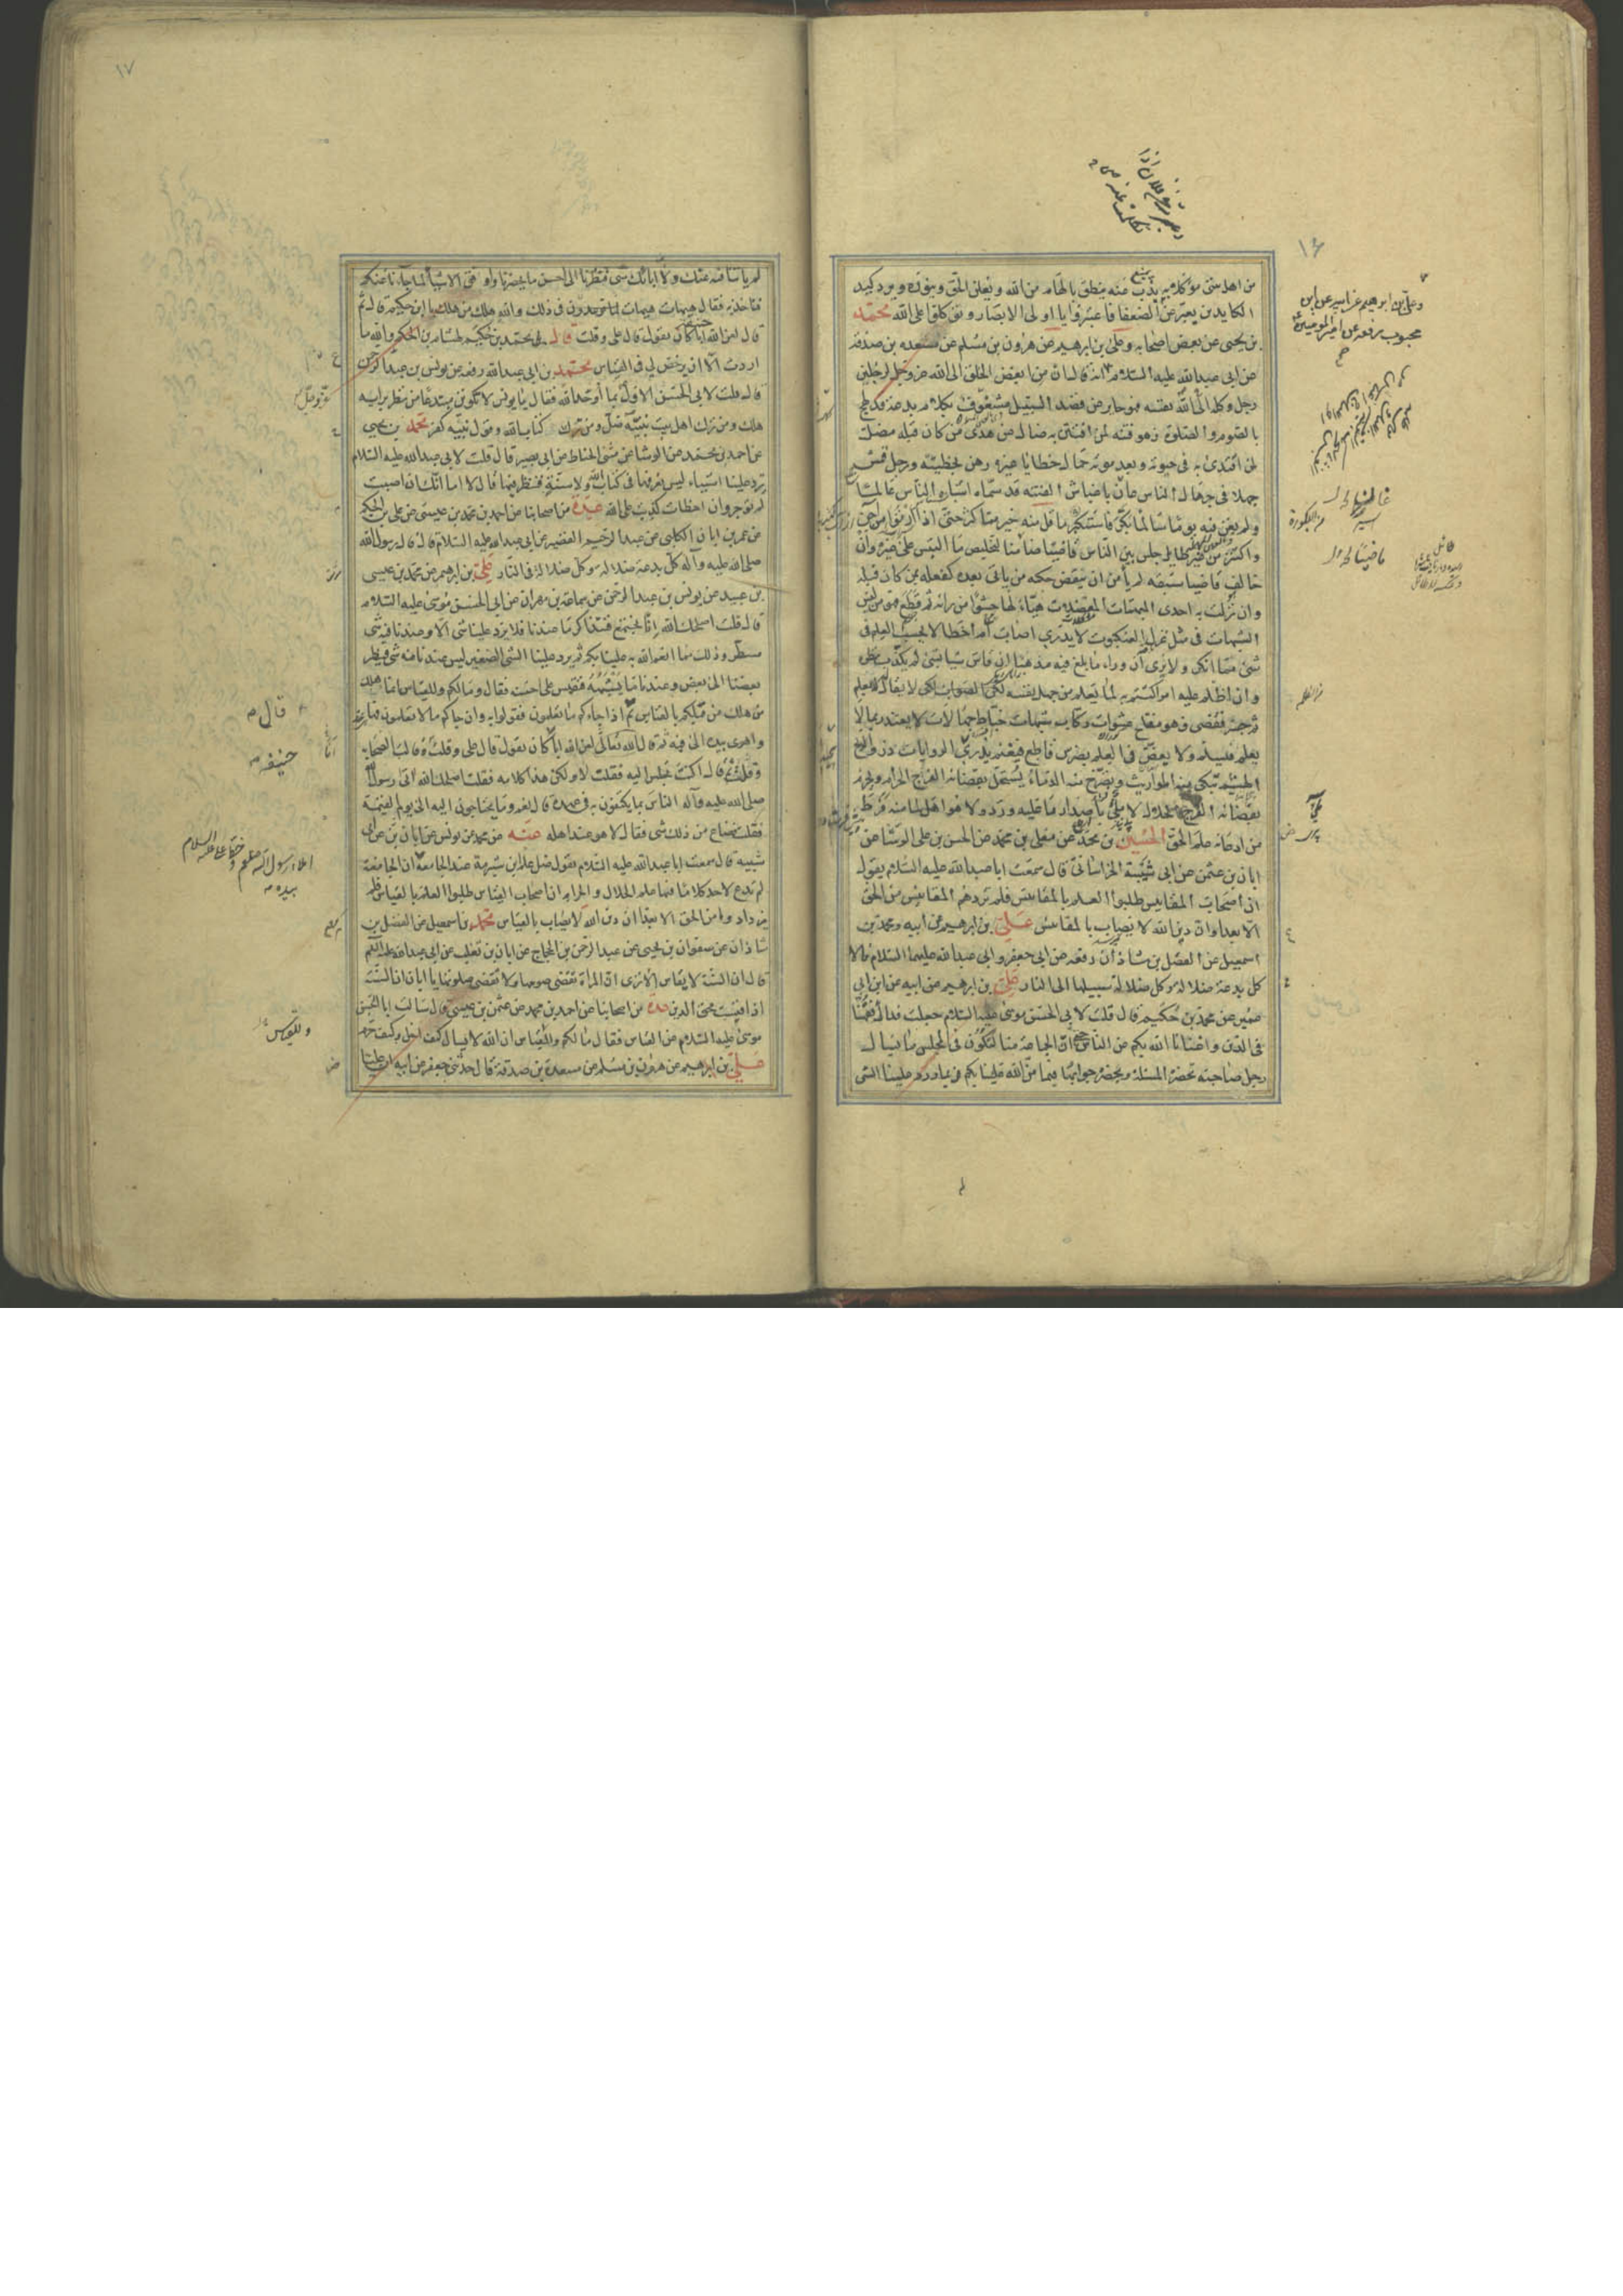 ١٦
وعلي بن ابرهيم عن ابيه عن ابن
محبوب رفعه عن امير المؤمنين
من اهل بيتي موكلا به يذب عنه ينطق بالهام من الله ويعلن الحق وينوره ويرد كيد
الكايدين يعبر عن الضعفا فاعتبروا يا اولى الابصار وتوكلوا على الله محمد
بن يحيى عن بعض اصحابه وعلي بن ابرهيم عن هرون بن مسلم عن مسعدة بن صدقة
عن ابي عبدالله عليه السلام انه قال ان من ابغض الخلق الى الله عز وجل لرجلين
رجل وكله الله الى نفسه فهو جاير عن قصد السبيل مشغوف بكلام بدعة قد لهج
بالصوم والصلوة فهو فتنة لمن افتتن به ضال عن هدى من كان قبله مضل
لمن اقتدى به في حيوته وبعد موته حمال خطايا غيره رهن بخطيئته ورجل قمش
جهلا في جهال الناس عان باغباش الفتنة قد سماه اشباه الناس عالما
ولم يغن فيه يوما سالما بكر فاستكثر ما قل منه خير مما كثر حتى اذا ارتوى من آجن
واكتنز من غير طايل جلس بين الناس قاضيا ضامنا لتخليص ما التبس على غيره وان
خالف قاضيا سبقه لم يأمن ان ينقض حكمه من ياتي بعده كفعله بمن كان قبله
وان نزلت به احدى المبهمات المعضلات هيأ لها حشوا من رايه ثم قطع فهو من لبس
الشبهات في مثل غزل العنكبوت لا يدري اصاب ام اخطا لا يحسب العلم في
شئ مما انكر ولا يرى ان وراء ما بلغ فيه مذهبا ان قاس شيا بشئ لم يكذب نظره
وان اظلم عليه امر اكتتم به لما يعلم من جهل نفسه لكي لا يقال له لا يعلم
ثم جسر فقضى فهو مفتاح عشوات ركاب شبهات خباط جهالات لا يعتذر مما لا
يعلم فيسلم ولا يعض في العلم بضرس قاطع فيغنم يذري الروايات ذرو الريح
الهشيم تبكي منه المواريث وتصرخ منه الدماء يستحل بقضائه الفرج الحرام ويحرم
بقضائه الفرج الحلال لا ملئ باصدار ما عليه ورد ولا هو اهل لما منه فرط
من ادعائه علم الحق الحسين بن محمد عن معلى بن محمد عن الحسن بن علي الوشا عن
ابان بن عثمن عن ابي شيبة الخراساني قال سمعت ابا عبدالله عليه السلام يقول
ان اصحاب المقاييس طلبوا العلم بالمقاييس فلم تزدهم المقاييس من الحق
الا بعدا وان دين الله لا يصاب بالمقاييس علي بن ابرهيم عن ابيه ومحمد بن
اسمعيل عن الفضل بن شاذان رفعه عن ابي جعفر وابي عبدالله عليهما السلام قالا
كل بدعة ضلالة وكل ضلالة سبيلها الى النار علي بن ابرهيم عن ابيه عن ابن ابي
عمير عن محمد بن حكيم قال قلت لابي الحسن موسى عليه السلام جعلت فداك فقهنا
في الدين واغنانا الله بكم عن الناس حتى ان الجماعة منا لتكون في المجلس ما يسال
رجل صاحبه تحضره المسئلة ويحضره جوابها فيما من الله علينا بكم فربما ورد علينا الشئ
١٧
لم ياتنا فيه عنك ولا عن ابائك شئ فنظرنا الى احسن ما يحضرنا واوفق الاشياء لما جاءنا عنكم
فناخذ به فقال هيهات هيهات في ذلك والله هلك من هلك يا ابن حكيم قال ثم
قال لعن الله ابا حنيفة كان يقول قال علي وقلت قال محمد بن حكيم لهشام بن الحكم والله ما
اردت الا ان يرخص لي في القياس محمد بن ابي عبدالله رفعه عن يونس بن عبدالرحمن
قال قلت لابي الحسن الاول بما اوحد الله فقال يا يونس لا تكونن مبتدعا من نظر برايه
هلك ومن ترك اهل بيت نبيه ضل ومن ترك كتاب الله وقول نبيه كفر محمد بن يحيى
عن احمد بن محمد عن الوشا عن مثنى الحناط عن ابي بصير قال قلت لابي عبدالله عليه السلام
ترد علينا اشياء ليس نعرفها في كتاب الله ولا سنة فننظر فيها قال لا اما انك ان اصبت
لم توجر وان اخطات كذبت على الله عدة من اصحابنا عن احمد بن محمد بن عيسى عن علي بن الحكم
عن عمر بن ابان الكلبي عن عبدالرحيم القصير عن ابي عبدالله عليه السلام قال قال رسول الله
صلى الله عليه وآله كل بدعة ضلالة وكل ضلالة في النار علي بن ابرهيم عن محمد بن عيسى
بن عبيد عن يونس بن عبدالرحمن عن سماعة بن مهران عن ابي الحسن موسى عليه السلام
قال قلت اصلحك الله انا نجتمع فنتذاكر ما عندنا فلا يرد علينا شئ الا وعندنا فيه شئ
مسطر وذلك مما انعم الله به علينا بكم ثم يرد علينا الشئ الصغير ليس عندنا فيه شئ فينظر
بعضنا الى بعض وعندنا ما يشبهه فنقيس على احسنه فقال وما لكم وللقياس انما هلك
من هلك من قبلكم بالقياس ثم اذا جاءكم ما تعلمون فقولوا به وان جاكم ما لا تعلمون فها
واهوى بيده الى فيه ثم قال لعن الله ابا كان يقول قال علي وقلت قالت الصحابة
وقلت ثم قال اكنت تجلس اليه فقلت لا ولكن هذا كلامه فقلت اصلحك الله اتى رسول الله
صلى الله عليه وآله الناس بما يكتفون به في عهده قال نعم وما يحتاجون اليه الى يوم القيمة
فقلت فضاع من ذلك شئ فقال لا هو عند اهله عنه عن محمد عن يونس عن ابان عن ابي
شيبة قال سمعت ابا عبدالله عليه السلام يقول ضل علم ابن شبرمة عند الجامعة ان الجامعة
لم تدع لاحد كلاما فيها علم الحلال والحرام ان اصحاب القياس طلبوا العلم بالقياس فلم
يزدادوا من الحق الا بعدا ان دين الله لا يصاب بالقياس محمد بن اسمعيل عن الفضل بن
شاذان عن صفوان بن يحيى عن عبدالرحمن بن الحجاج عن ابان بن تغلب عن ابي عبدالله عليه السلام
قال ان السنة لا يقاس الا ترى ان المراة تقضي صومها ولا تقضي صلوتها يا ابان ان السنة
اذا قيست محق الدين عدة من اصحابنا عن احمد بن محمد عن عثمن بن عيسى قال سالت ابا الحسن
موسى عليه السلام عن القياس فقال ما لكم والقياس ان الله لا يسال كيف احل وكيف حرم
علي بن ابرهيم عن هرون بن مسلم عن مسعدة بن صدقة قال حدثني جعفر عن ابيه ان عليا
قال
حنيفة
املاء رسول الله صلعم وخط علي عليه السلام
بيده